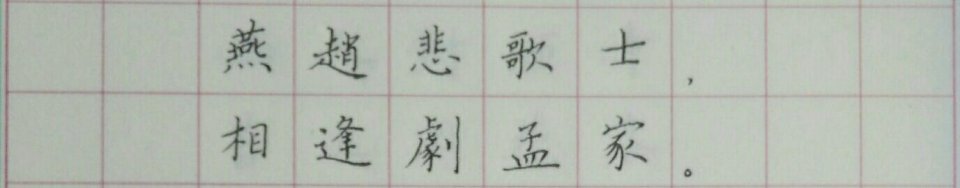 燕趙悲歌士，
相逢劇孟家。